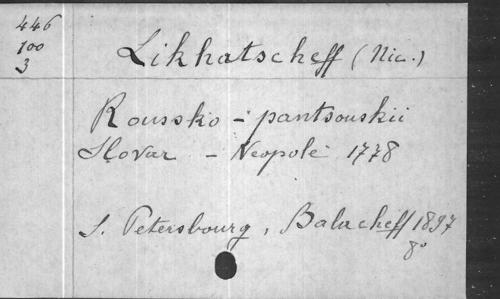 446
100
3
Likhatscheff (Nic.)
Roussko - pantsouskii
Slovar - Neopole 1778
S. Petersbourg, Balacheff 1897
8°